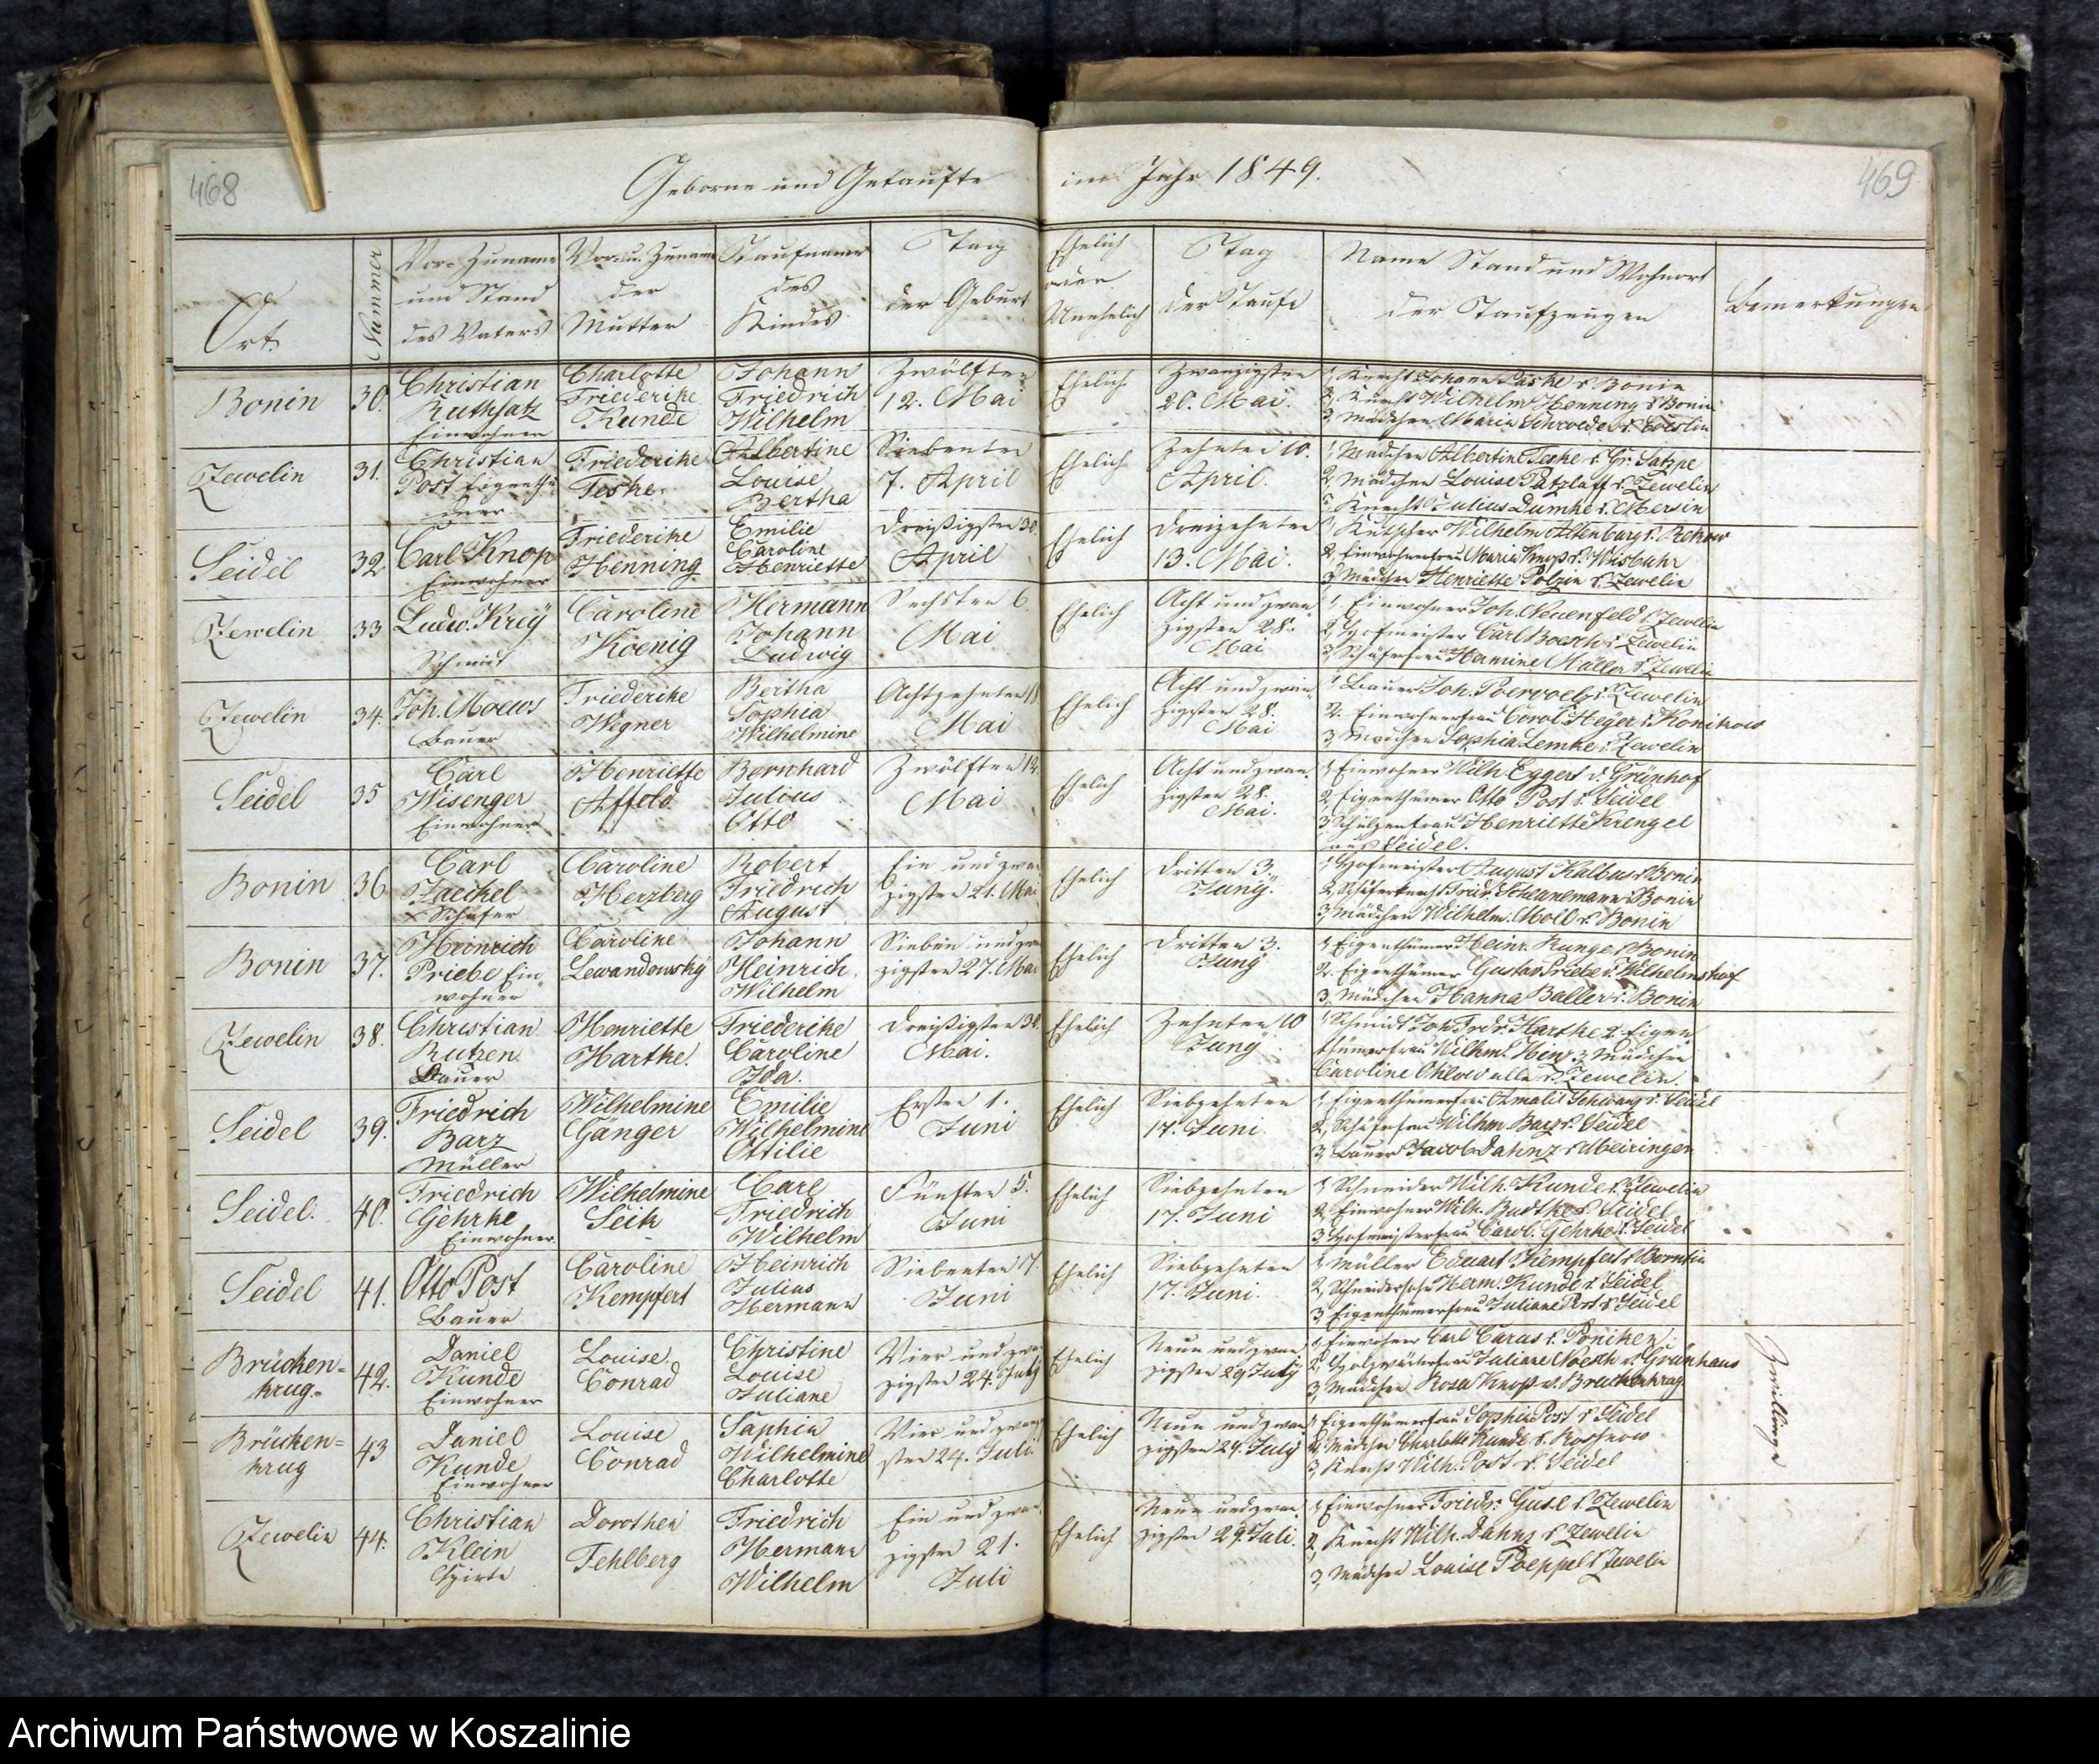 468
Geborne und Getaufte im Jahr 1849.
469
Ort.
Nummer
Vor- Zuname und Stand des Vaters
Vor- u. Zuname der Mutter
Taufname des Kindes
Tag der Geburt
Ehelich oder Unehelich
Tag der Taufe
Name Stand und Wohnort der Taufzeugen
Bemerkungen
Bonin 30. Christian Ruthsatz Einwohner
Charlotte Friederike Kunde
Johann Friedrich Wilhelm
Zwölften 12. Mai
Ehelich
Zwanzigsten 20. Mai.
1, Knecht Johann Paske v. Bonin
2, Knecht Wilhelm Henning v. Bonin
3, Mädchen Maria Schroeder v. Coeslin
Zewelin 31. Christian Post Eigenthümer
Friederike Teske.
Albertine Louise Bertha
Siebenten 7. April
Ehelich
Zehnten 10. April.
1, Mädchen Albertine Teske v. Gr. Satzpe
2, Mädchen Louise Patzlaff v. Zewelin
3, Knecht Julius Dumke v. Mersin
Seidel 32. Carl Knop Einwohner
Friederike Henning
Emilie Caroline Henriette
Dreißigsten 30. April
Ehelich
Dreizehnten 13. Mai.
1, Kutscher Wilhelm Altenburg v. Rekow
2, Einwohnerfrau Maria Knop v. Wusbuhr
3, Mädchen Henriette Polzin v. Zewelin
Zewelin 33 Ludw. Krüy Schmidt
Caroline Koenig
Hermann Johann Ludwig
Sechsten 6. Mai
Ehelich
Acht und zwanzigsten 28. Mai
1, Einwohner Joh. Neuenfeld v. Zewelin
2, Hofmeister Carl Boesch v. Zewelin
3, Schäferfrau Hamine Müller v. Zewelin
Zewelin 34. Joh. Moews Bauer
Friederike Wegner
Bertha Sophia Wilhelmine
Achtzehnten 18 Mai
Ehelich
Acht und zwanzigsten 28. Mai
1, Bauer Joh. Poervoelz v. Zewelin
2. Einwohnerfrau Carol. Heyer v. Konikow
3, Mädchen Sophia Lemke v. Zewelin
Seidel 35 Carl Wisenger Einwohner
Henriette Affeld
Bernhard Julius Otto
Zwölften 12. Mai
Ehelich
Acht und zwanzigsten 28. Mai.
1, Einwohner Wilh. Eggert v. Grünhof
2, Eigenthümer Otto Post v. Seidel
3, Schulzenfrau Henriette Krengel
aus Seidel.
Bonin 36 Carl Zaechel Schäfer
Caroline Herzberg
Robert Friedrich August
Ein und zwanzigsten 21. Mai
Ehelich
Dritten 3. Juny.
1, Hofmeister August Kalbus v. Bonin
2, Schäferknecht Fridr. Scheunemann v. Bonin
3, Mädchen Wilhelm. Moll v. Bonin
Bonin 37. Heinrich Priebe Einwohner
Caroline Lewandowsky
Johann Heinrich Wilhelm
Sieben und zwanzigsten 27. Mai
Ehelich
Dritten 3. Juny
1, Eigenthümer Heinr. Runge v. Bonin
2. Eigenthümer Gustav Priebe v. Wilhelmshof
3, Mädchen Hanna Baller v. Bonin
Zewelin 38. Christian Rutzen Bauer
Henriette Harthe.
Friederike Caroline Ida.
Dreißigsten 30. Mai.
Ehelich
Zehnten 10 Juny
1, Schmidt Joh. Frdr. Harthe 2. Eigen
thümerfrau Wilhm. Hinz 3, Mädchen
Caroline Ohlow alle v. Zewelin.
Seidel 39. Friedrich Barz Müller
Wilhelmine Ganger
Emilie Wilhelmine Ottilie
Ersten 1. Juni
Ehelich
Siebzehnten 17. Juni.
1, Eigenthümerfrau Amalie Schwarz v. Seidel
2, Schäferfrau Wilhm Barz v. Seidel
3, Bauer Jacob Dahnz v. Meiringen
Seidel. 40. Friedrich Gehrke Einwohner
Wilhelmine Seik
Carl Friedrich Wilhelm
Fünften 5. Juni
Ehelich
Siebzehnten 17. Juni
1, Schneider Wilh. Kunde v. Zewelin
2, Einwohner Wilh. Budtke v. Seidel
3, Hofmeisterfrau Carol. Gehrke v. Seidel
Seidel 41. Otto Post Bauer
Caroline Kempfert
Heinrich Julius Hermann
Siebenten 7. Juni
Ehelich
Siebzehnten 17. Juni.
1, Müller Eduart Kempfert v. Borntin
2, Schneidersohn Herm. Kunde v. Seidel
3, Eigenthümerfrau Juliane Post v. Seidel
Brücken=krug= 42. Daniel Kunde Einwohner
Louise Conrad
Christine Louise Juliane
Vier und zwanzigsten 24. July
Ehelich
Neun und zwanzigsten 29 July
1, Einwohner Carl Carus v. Poniken
2, Holzwärterfrau Juliane Noesch v. Grünhaus
3, Mädchen Rosa Knop v. Brückenkrug
Zwillinge
Brücken=krug 43 Daniel Kunde Einwohner
Louise Conrad
Saphia Wilhelmine Charlotte
Vier und zwanzigsten 24. Juli
Ehelich
Neun und zwanzigsten 29. July
1, Eigenthümerfrau Sophia Post v. Seidel
2, Mädchen Charlotte Kunde v. Rossnow
3, Knecht Wilh. Post v. Seidel
Zewelin 44. Christian Klein Hirte
Dorothea Fehlberg
Friedrich Hermann Wilhelm
Ein und zwanzigsten 21. Juli
Ehelich
Neun und zwanzigsten 29. Juli.
1, Einwohner Friedr. Guse v. Zewelin
2, Knecht Wilh. Dahnz v. Zewelin
3, Mädchen Louise Poeppel v. Zewelin
Archiwum Państwowe w Koszalinie